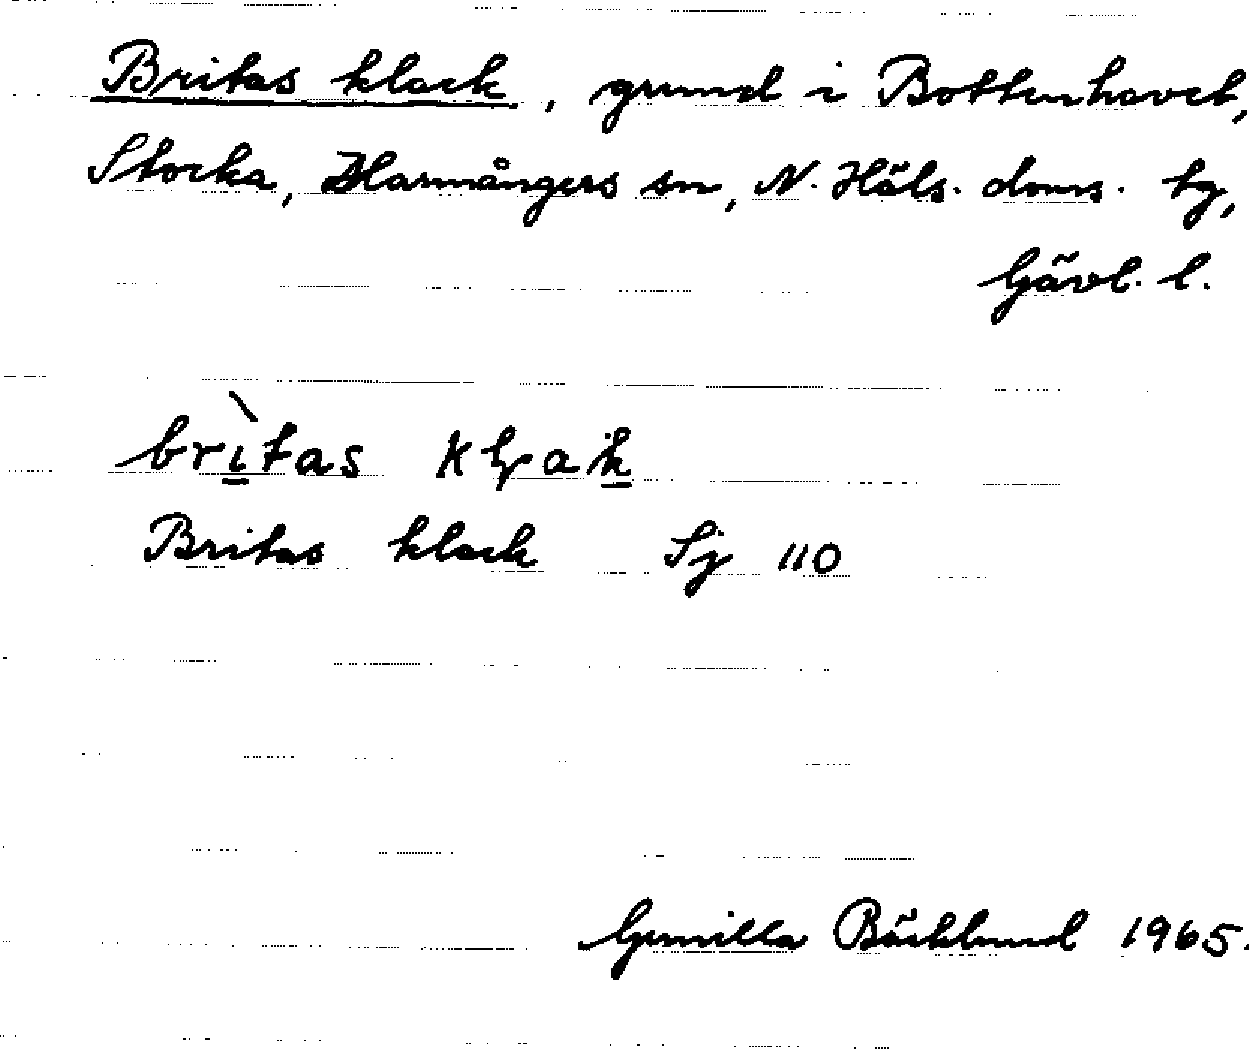 Britas klack, grund i Bottenhavet,
Stocka, Harmångers sn, N. Häls. doms. tg,
Gävl. l.
brìtas kl̥ak
Britas klack Sj 110
Gunilla Bäcklund 1965.